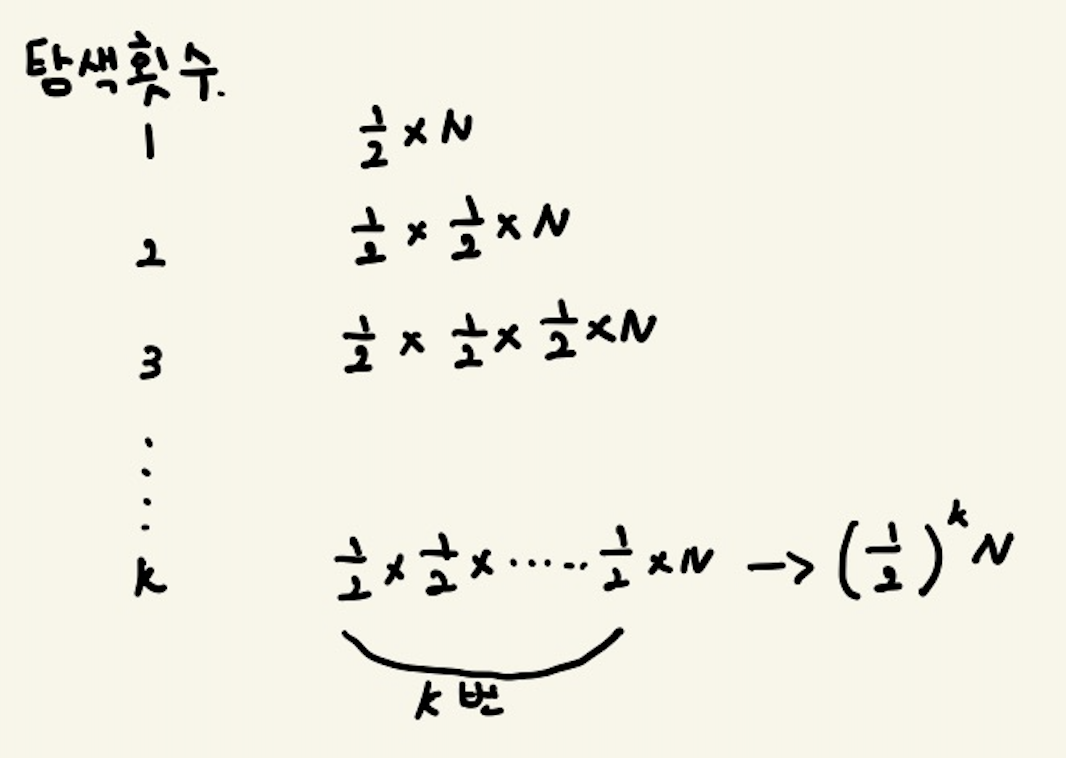 탐색횟수.
1 ½ × N
2 ½ × ½ × N
3 ½ × ½ × ½ × N
⋮
k ½ × ½ × ...... ½ × N → (½)ᵏ N
k 번